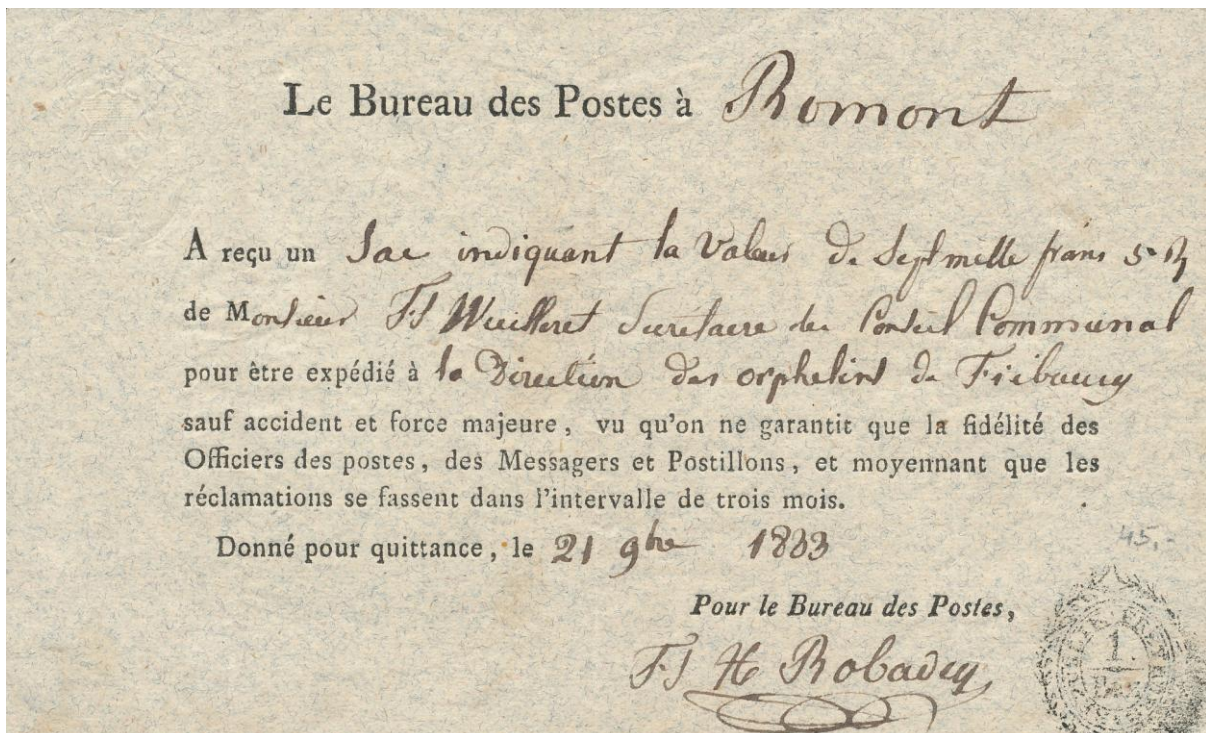 Le Bureau des Postes à Romont
A reçu un Sac indiquant la Valeur de Sept mille frans 5
de Monsieur Fs Wuilleret Secrétaire du Conseil Communal
pour être expédié à la Direction des orphelins de Fribourg
sauf accident et force majeure, vu qu'on ne garantit que la fidélité des
Officiers des postes, des Messagers et Postillons, et moyennant que les
réclamations se fassent dans l'intervalle de trois mois.
Donné pour quittance, le 21 9bre 1833
45,-
Pour le Bureau des Postes,
Fs H Robadey
1.